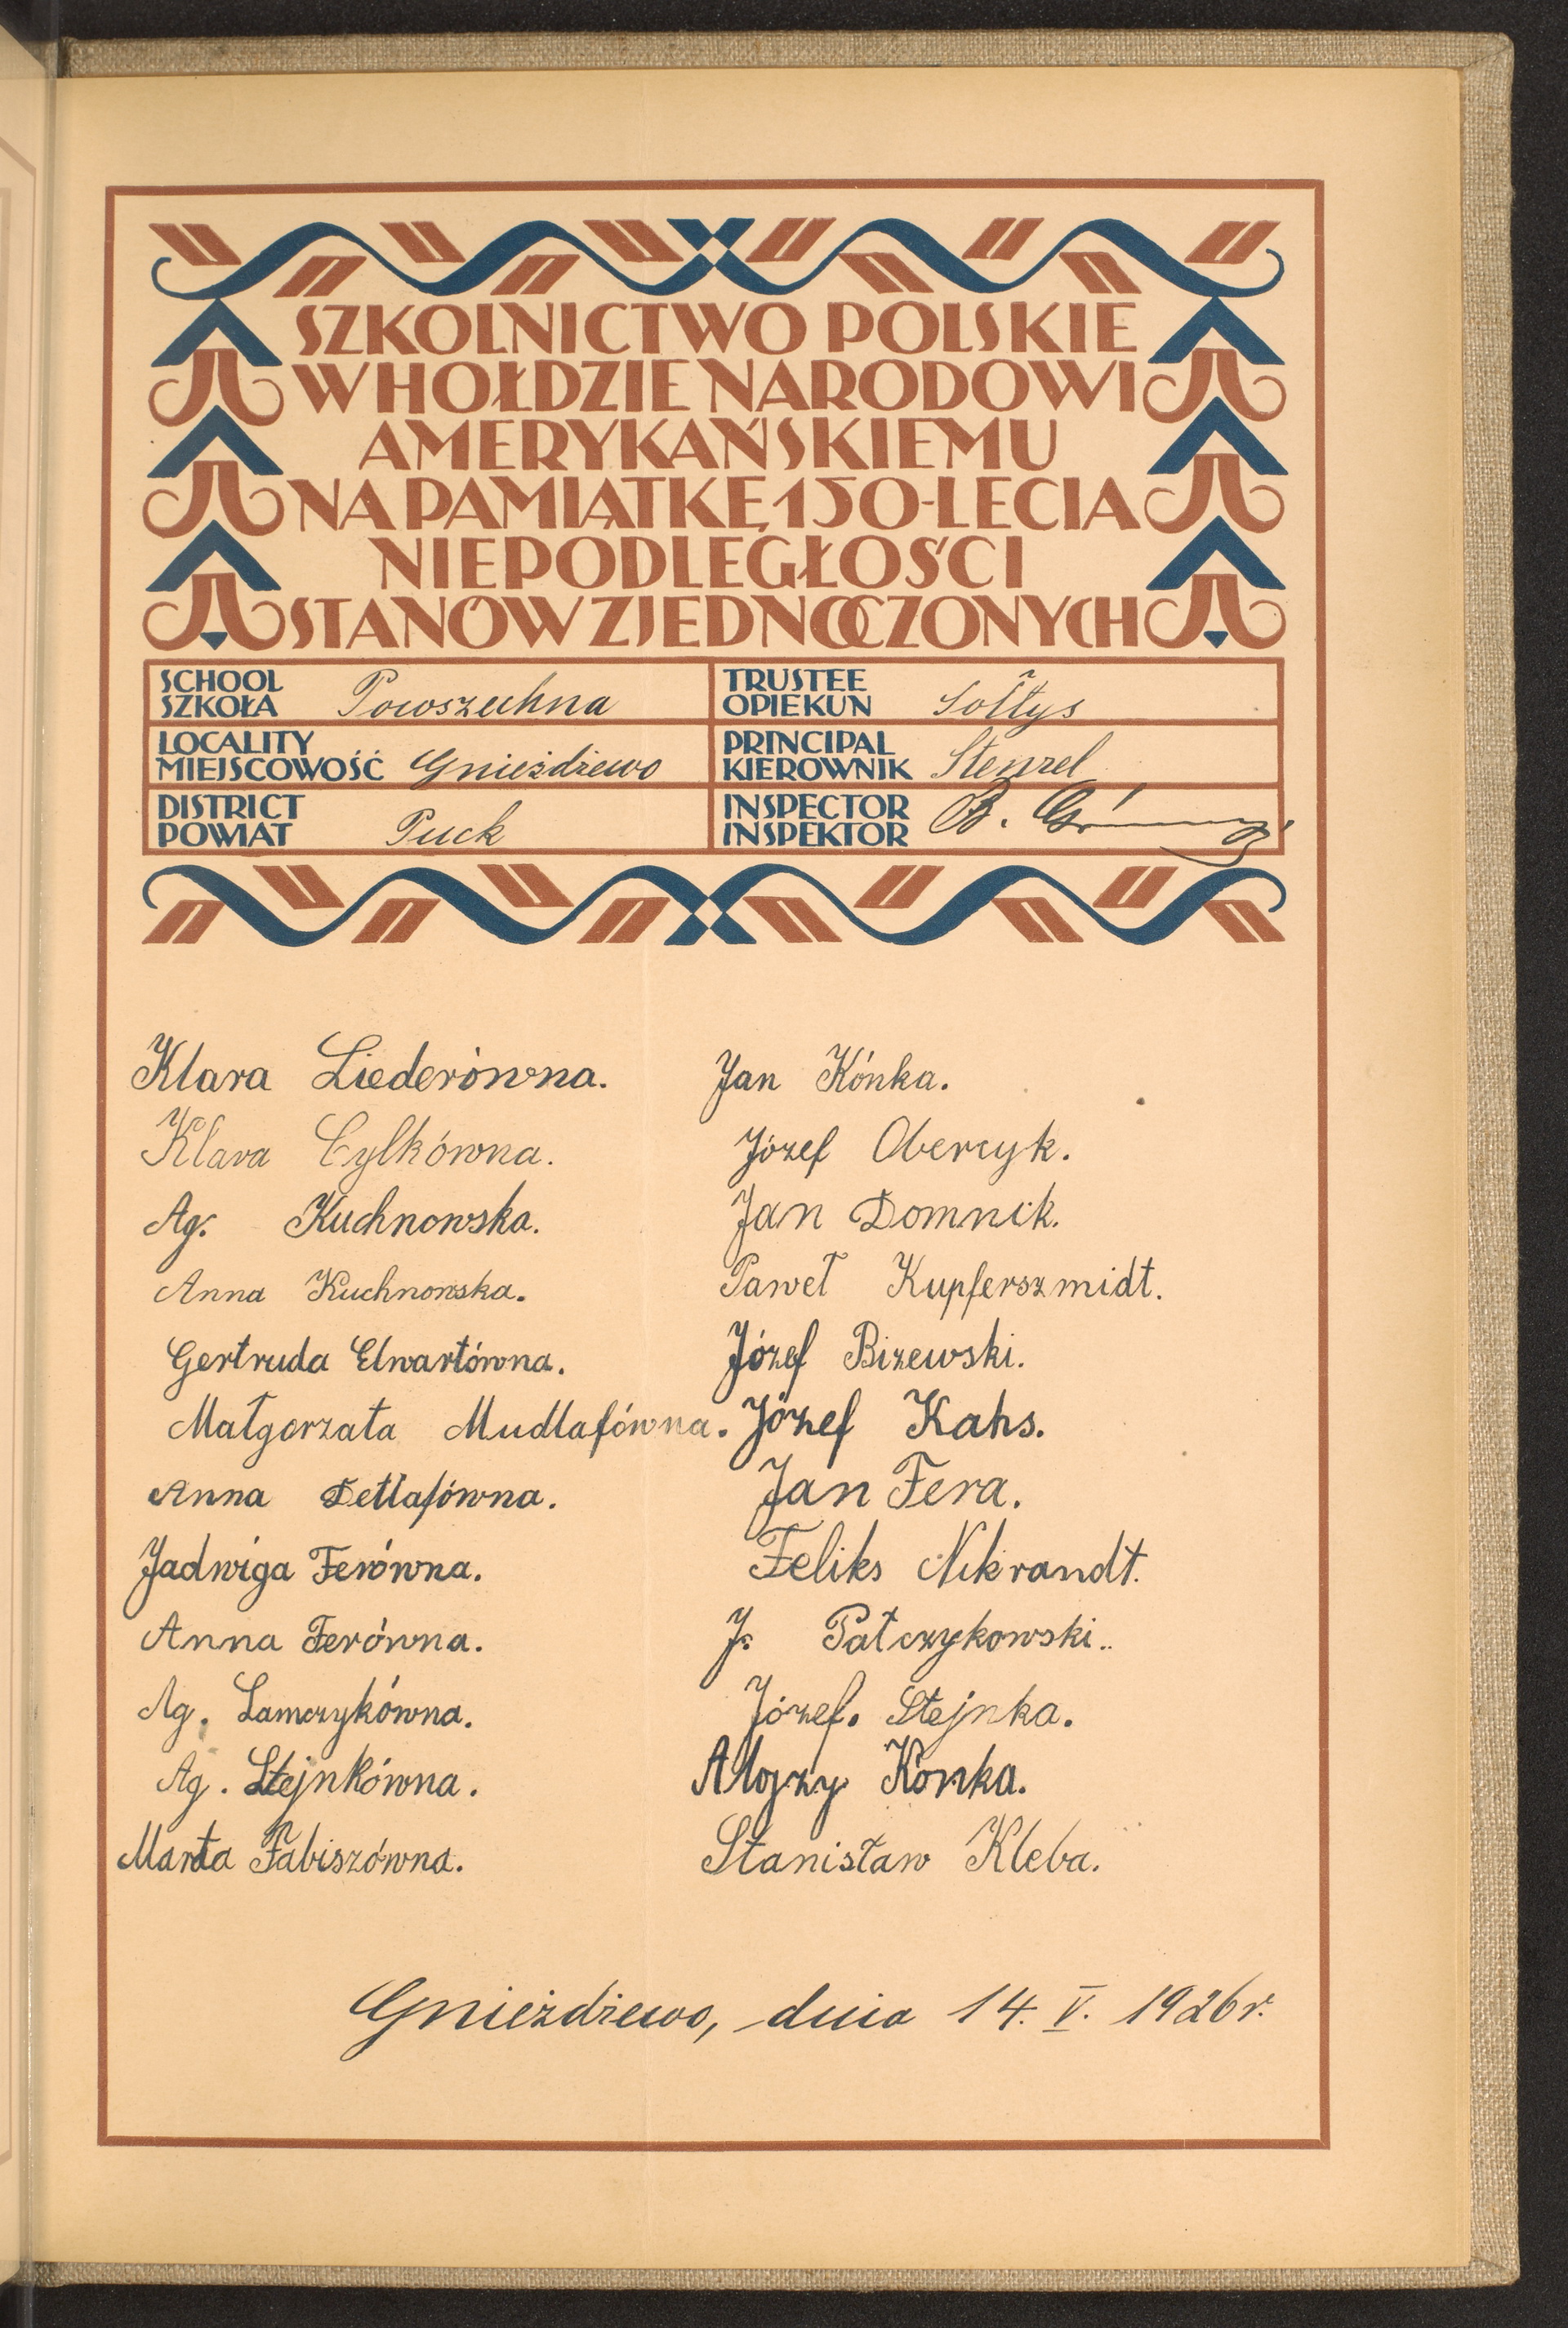 SZKOLNICTWO POLSKIE
W HOŁDZIE NARODOWI
AMERYKAŃSKIEMU
NA PAMIĄTKĘ 150-LECIA
NIEPODLEGŁOŚCI
STANÓW ZJEDNOCZONYCH
SCHOOL
SZKOŁA Powszechna
TRUSTEE
OPIEKUN Sołtys
LOCALITY
MIEJSCOWOŚĆ Gnieżdżewo
PRINCIPAL
KIEROWNIK Stenzel
DISTRICT
POWIAT Puck
INSPECTOR
INSPEKTOR B.
Klara Liederówna.
Klara Cylkówna.
Ag. Kuchnowska.
Anna Kuchnowska.
Gertruda Elwartówna.
Małgorzata Mudlafówna.
Anna Detlafówna.
Jadwiga Ferówna.
Anna Ferówna.
Ag. Lamczykówna.
Ag. Stejnkówna.
Marta Fabiszówna.
Jan Kónka.
Józef Obercyk.
Jan Domnik.
Paweł Kupferszmidt.
Józef Bizewski.
Józef Kahs.
Jan Fera.
Feliks Nikrandt.
J. Patczykowski..
Józef. Stejnka.
Alojzy Konka.
Stanisław Kleba.
Gnieżdżewo, dnia 14. V. 1926 r.